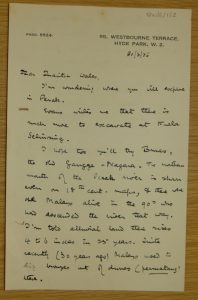 PADD. 5504.
90, WESTBOURNE TERRACE,
HYDE PARK, W. 2.
Dear Quaritch Wales,
I'm wondering where you will explore
in Perak.
Evans writes me that there is
much more to excavate at Kuala
Selinsing.
I hope too you'll try Bruas,
the old Gangga-Nagara. The northern
mouth of the Perak river is shown
even on 18th cent. maps, & there were
old Malays alive in the 90's who
had ascended the river that way.
I'm told alluvial land there rises
4 to 6 inches in 35 years. Quite
recently (30 years ago) Malays used to
dig images out of dunes (permatang)
there.